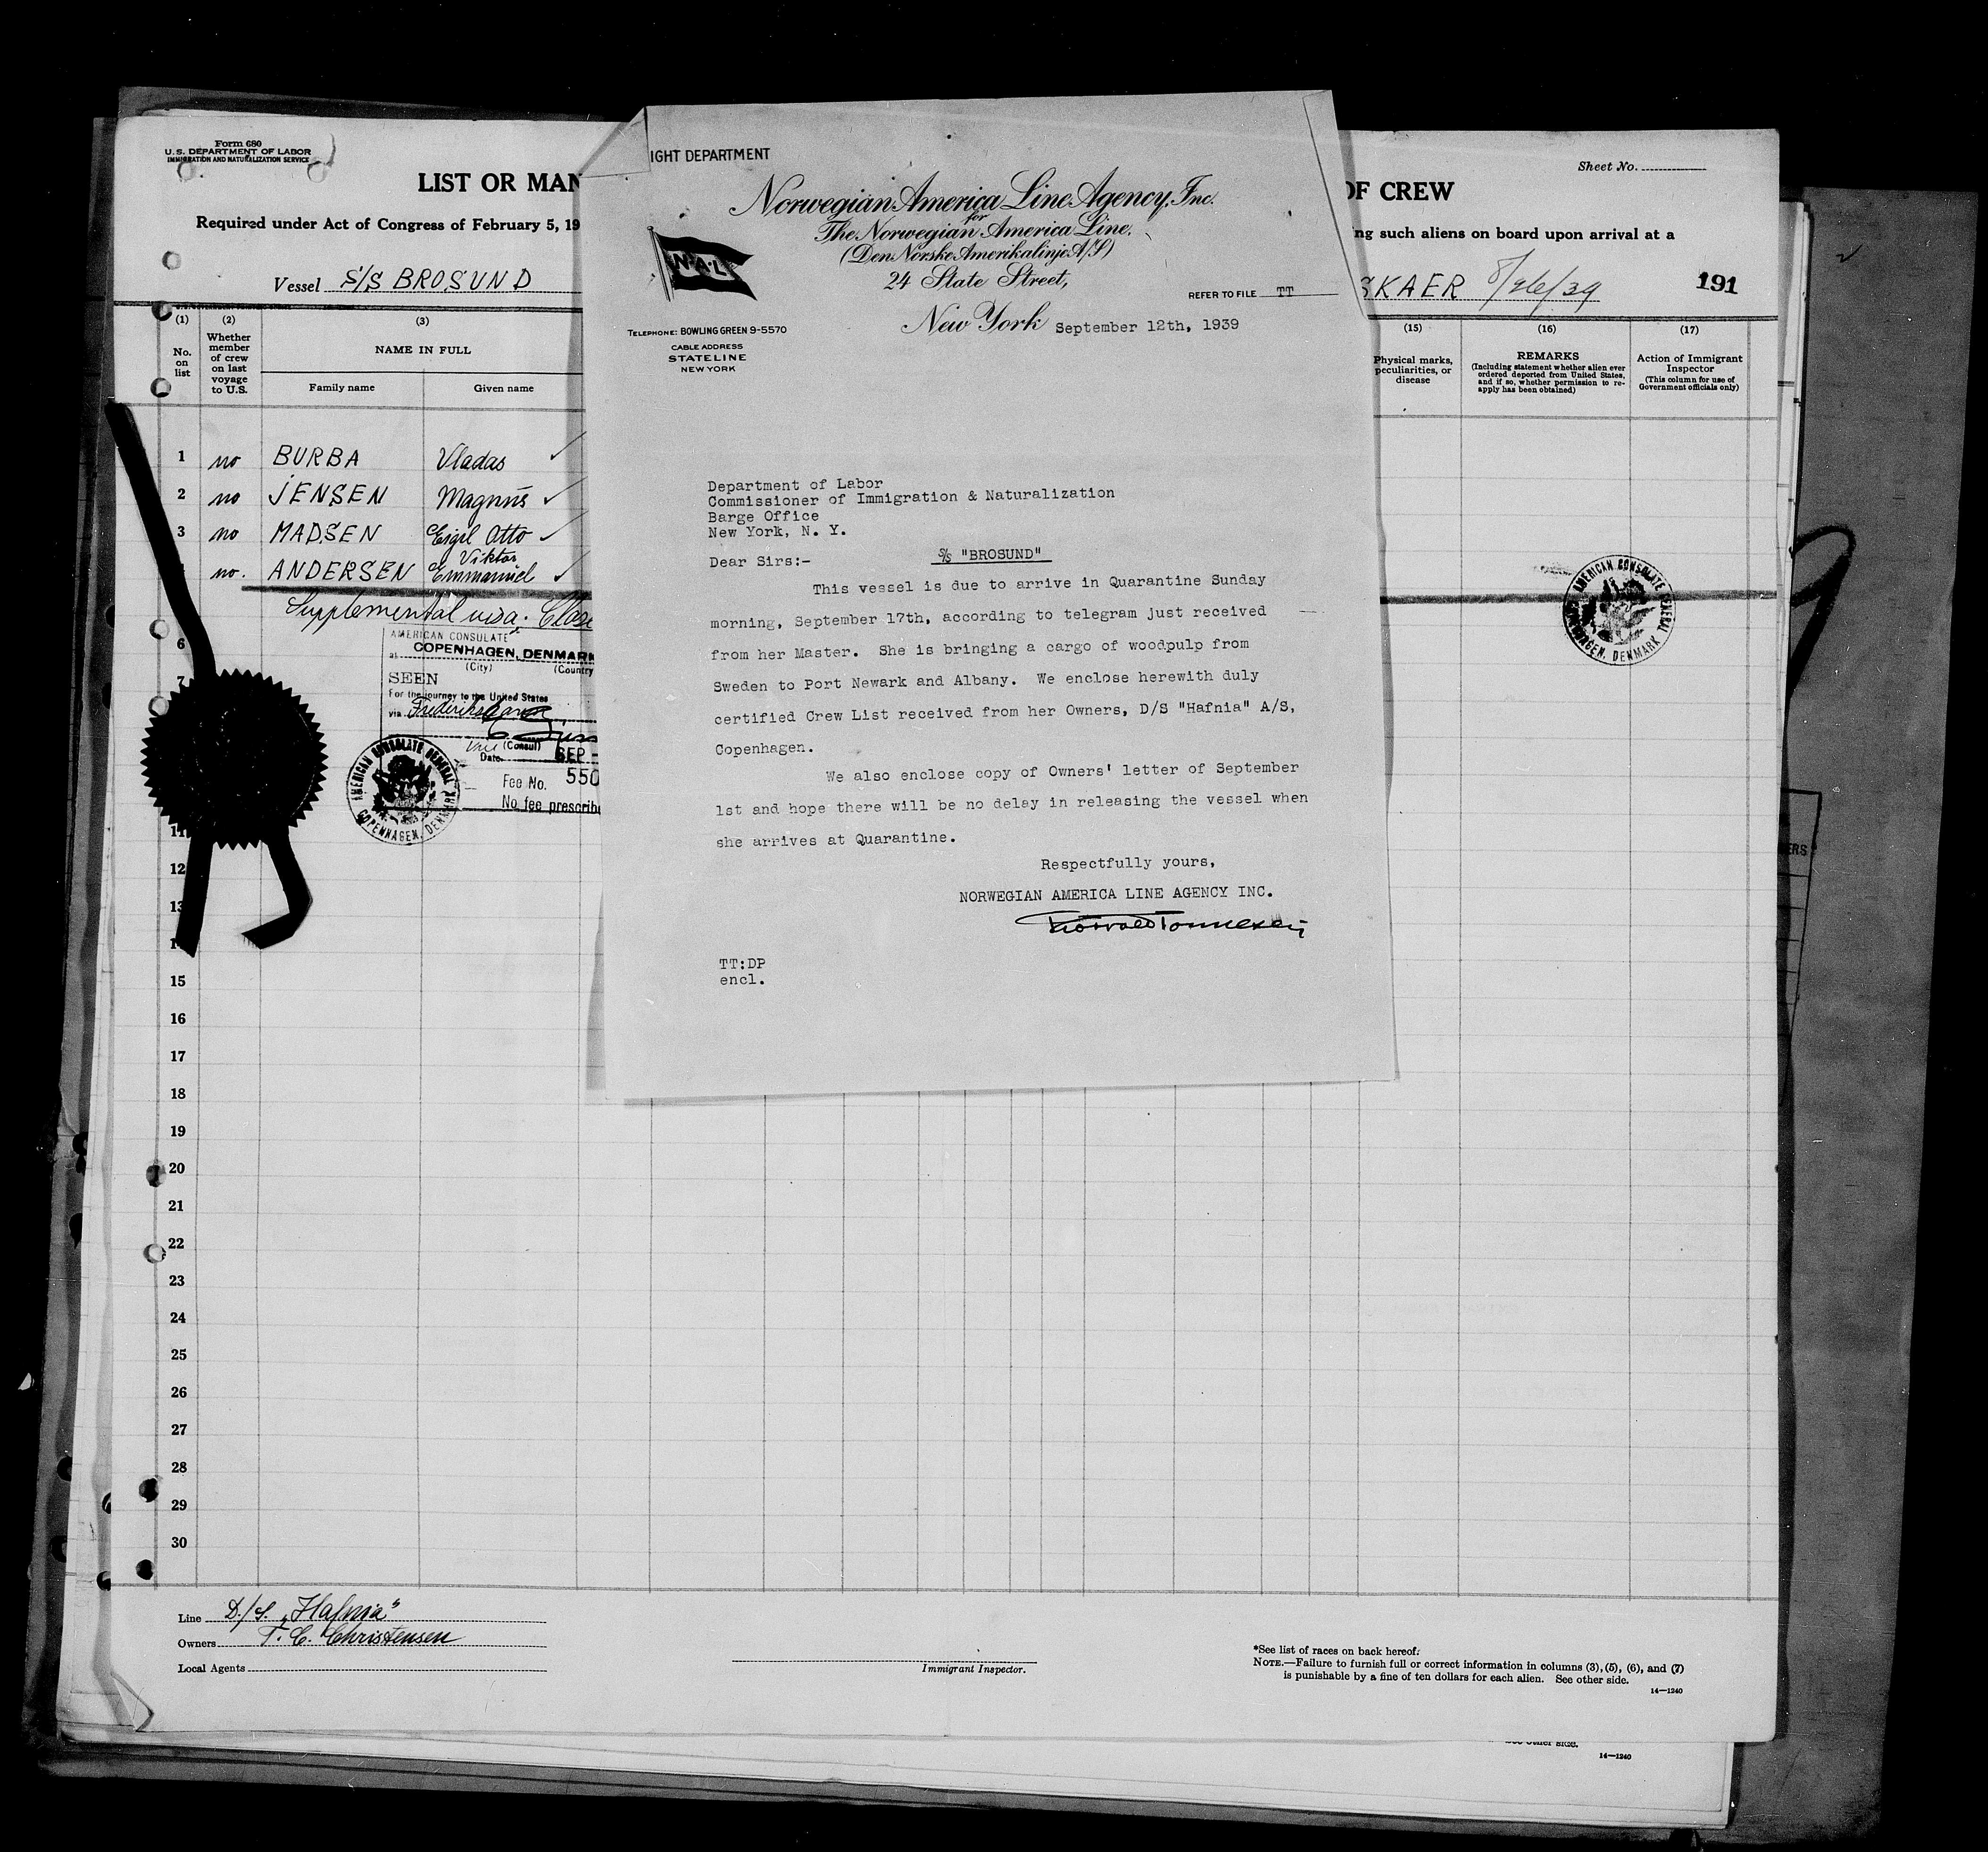 Form 680
U.S. DEPARTMENT OF LABOR
IMMIGRATION AND NATURALIZATION SERVICE
LIST OR MAN
OF CREW
Sheet No.
Required under Act of Congress of February 5, 19
ng such aliens on board upon arrival at a
Vessel S/S BROSUND
SKAER 8/26/39
191
(1)
(2)
(3)
(15)
(16)
(17)
No. on list
Whether member of crew on last voyage to U.S.
NAME IN FULL
Family name
Given name
Physical marks, peculiarities, or disease
REMARKS
(Including statement whether alien ever ordered deported from United States, and if so, whether permission to reapply has been obtained)
Action of Immigrant Inspector
(This column for use of Government officials only)
1 no BURBA Vladas
2 no JENSEN Magnus
3 no MADSEN Eigil Otto
no. ANDERSEN Viktor Emmanuel
Supplemental visa.
6
7
11
12
13
15
16
17
18
19
20
21
22
23
24
25
26
27
28
29
30
AMERICAN CONSULATE
at COPENHAGEN, DENMARK
(City) (Country
SEEN
For the journey to the United States
via Frederikshavn
(Consul)
Date SEP
Fee No. 550
No fee prescribe
AMERICAN CONSULATE GENERAL
COPENHAGEN, DENMARK
AMERICAN CONSULATE GENERAL
COPENHAGEN, DENMARK
IGHT DEPARTMENT
Norwegian America Line Agency, Inc.
for
The Norwegian America Line.
(Den Norske Amerikalinje A/S)
24 State Street,
N·A·L
REFER TO FILE TT
New York September 12th, 1939
TELEPHONE: BOWLING GREEN 9-5570
CABLE ADDRESS
STATELINE
NEW YORK
Department of Labor
Commissioner of Immigration & Naturalization
Barge Office
New York, N. Y.
Dear Sirs:- S/S "BROSUND"
This vessel is due to arrive in Quarantine Sunday
morning, September 17th, according to telegram just received
from her Master. She is bringing a cargo of woodpulp from
Sweden to Port Newark and Albany. We enclose herewith duly
certified Crew List received from her Owners, D/S "Hafnia" A/S,
Copenhagen.
We also enclose copy of Owners' letter of September
1st and hope there will be no delay in releasing the vessel when
she arrives at Quarantine.
Respectfully yours,
NORWEGIAN AMERICA LINE AGENCY INC.
TT:DP
encl.
Line D/S. "Hafnia"
Owners T. C. Christensen
Local Agents
Immigrant Inspector.
*See list of races on back hereof.
NOTE.—Failure to furnish full or correct information in columns (3), (5), (6), and (7)
is punishable by a fine of ten dollars for each alien. See other side.
14—1240
14—1240